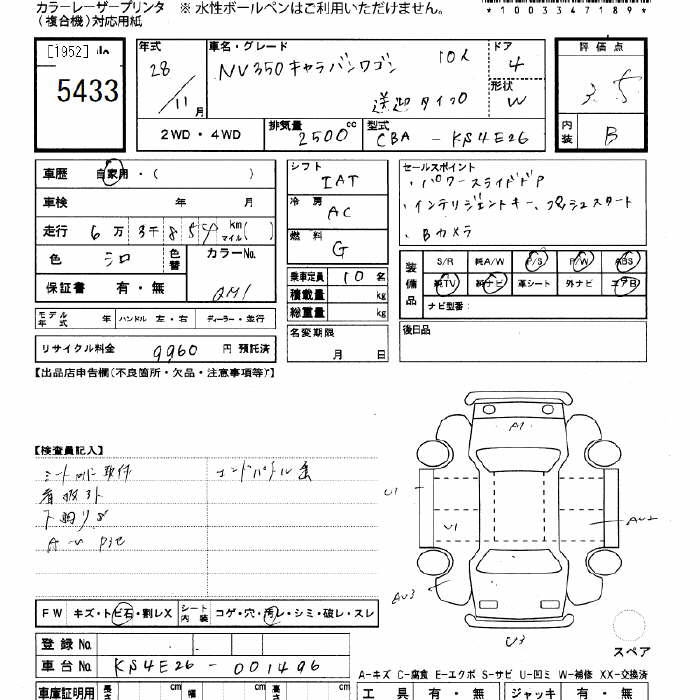 カラーレーザープリンタ ※ 水性ボールペンはご利用いただけません。
(複合機)対応用紙
*1003347189*
[1952]
5433
年式 28/11月
車名・グレード NV350キャラバンワゴン 10人
送迎タイプ
ドア 4
形状 W
評価点 3.5
内装 B
2WD・4WD
排気量 2500cc
型式 CBA - KS4E26
車歴 自家用・( )
車検 年 月
走行 6万3千8 km マイル( )
色 シロ 色替
カラーNo. QM1
保証書 有・無
シフト IAT
冷房 AC
燃料 G
乗車定員 10名
積載量 kg
総重量 kg
セールスポイント
・パワースライドドア
・インテリジェントキー、プッシュスタート
・Bカメラ
装備品 S/R 純A/W P/S P/W ABS
純TV 純ナビ 革シート 外ナビ エアB
ナビ型番:
モデル年式 年 ハンドル 左・右 ディーラー・並行
名変期限 月 日
後日品
リサイクル料金 9960 円 預託済
【出品店申告欄(不良箇所・欠品・注意事項等)】
【検査員記入】
A1
U1
U1
AU2
AU3
U3
スペア
FW キズ・トビ石・割レX シート内装 コゲ・穴・汚レ・シミ・破レ・スレ
登録No.
車台No. KS4E26-001496
A-キズ C-腐食 E-エクボ S-サビ U-凹ミ W-補修 XX-交換済
車庫証明用 長さ cm 幅 cm 高さ cm
工具 有・無 ジャッキ 有・無